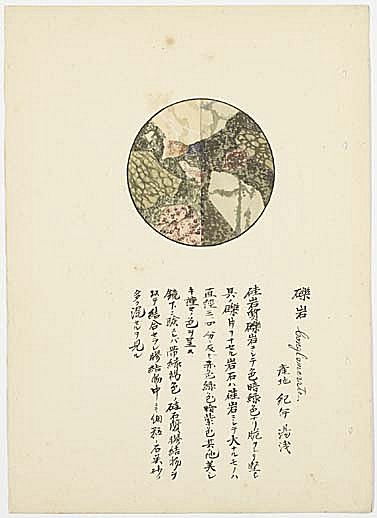 礫岩 Conglomerate.
産地 紀伊 湯浅
硅岩質礫岩ニシテ色暗緑色ナリ
其礫片ヲナセル岩石ハ硅岩ニシテ大ナルモノハ
直径三四分アリ赤色緑色暗紫色其他美シ
キ種々ノ色ヲ呈ス
鏡下ニ験スレハ帯緑褐色ノ硅石質膠結物ヲ
以テ結合セラレ膠結物中ニ細粒ノ石英砂ノ
多ク混スルヲ見ル